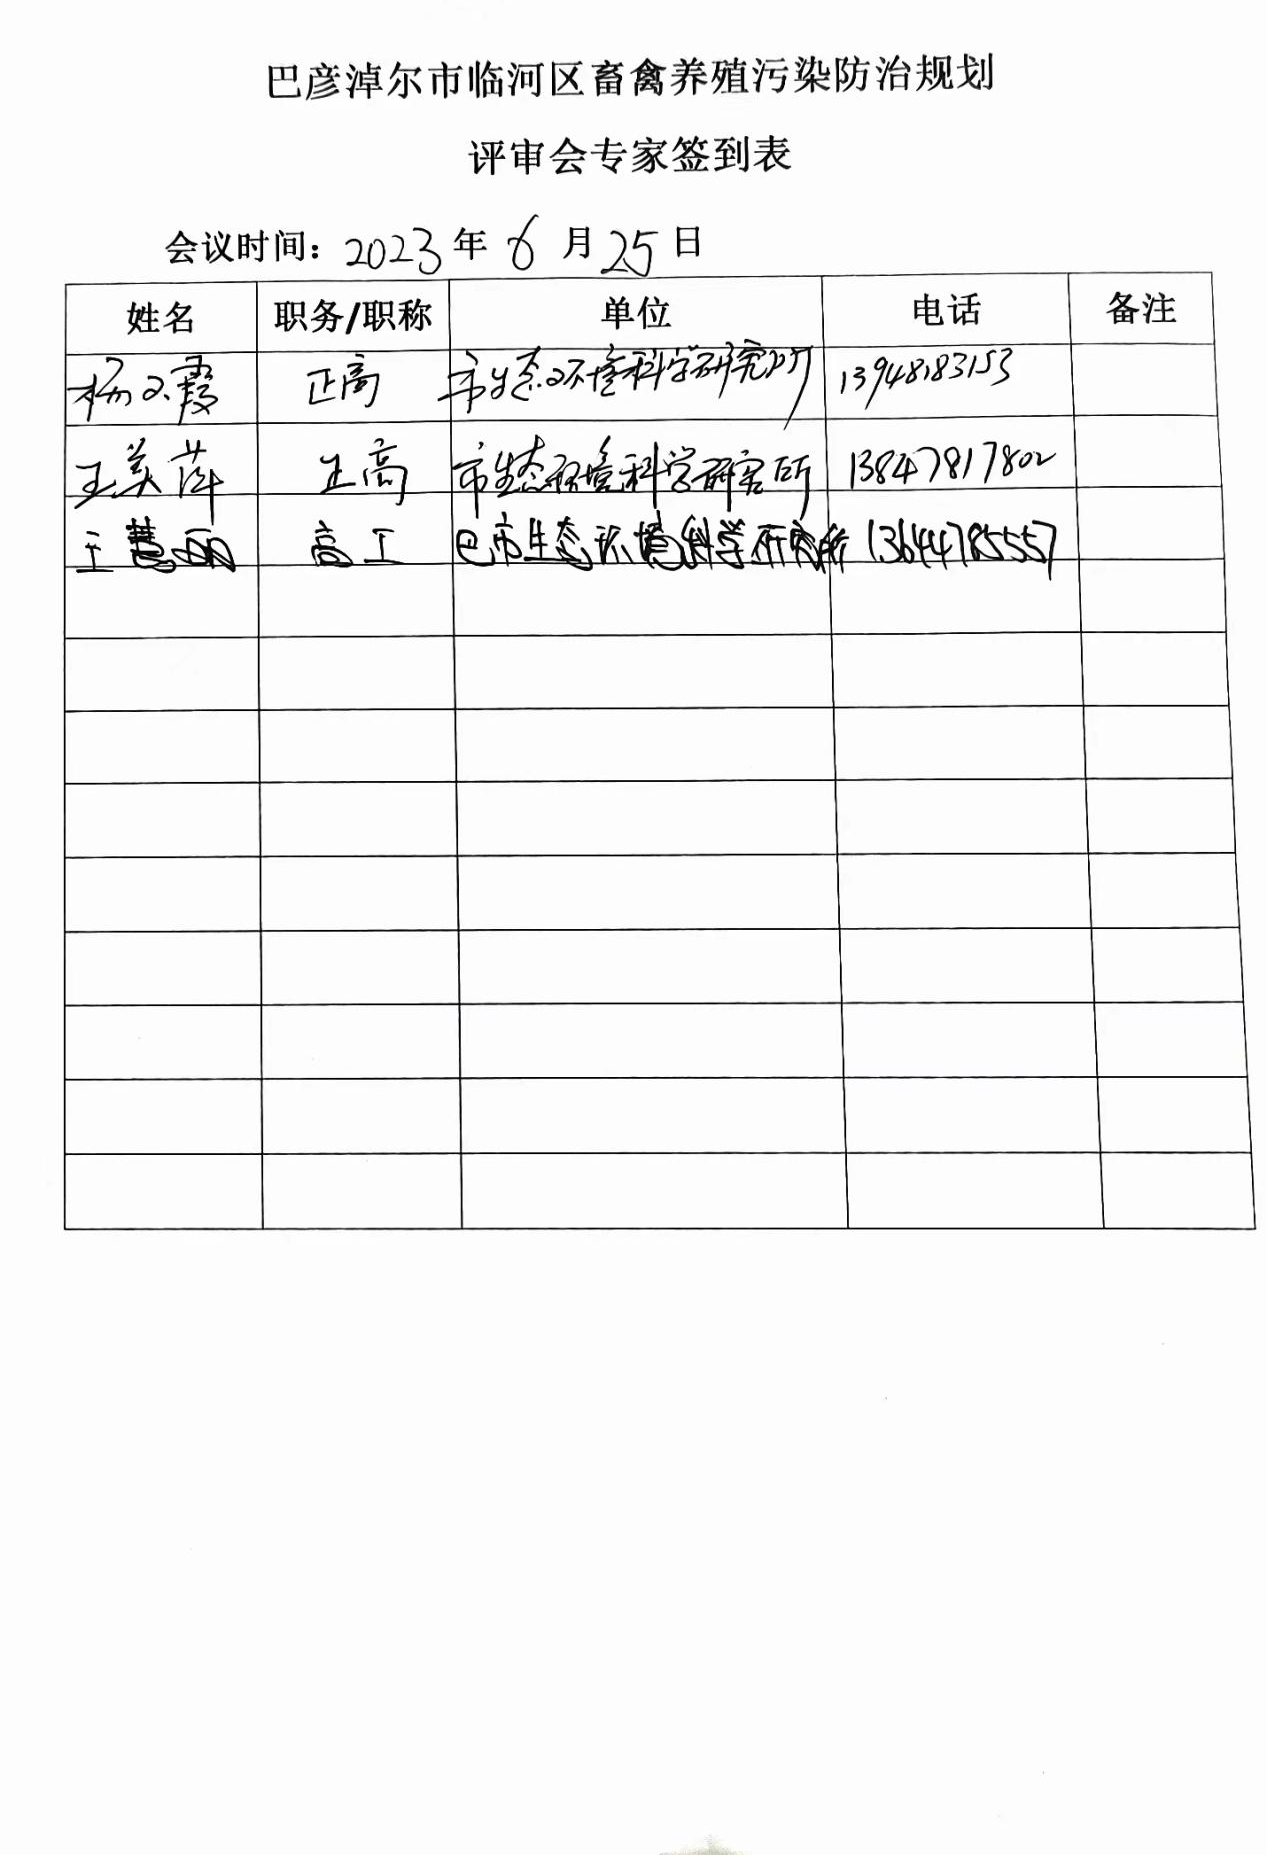 巴彦淖尔市临河区畜禽养殖污染防治规划
评审会专家签到表
会议时间：2023年6月25日
姓名 职务/职称 单位 电话 备注
杨文霞 正高 市生态环境科学研究所 13948183153
王美萍 正高 市生态环境科学研究所 13847817802
王慧丽 高工 巴市生态环境科学研究所 13644785557